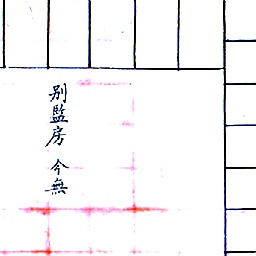 別監房 今無